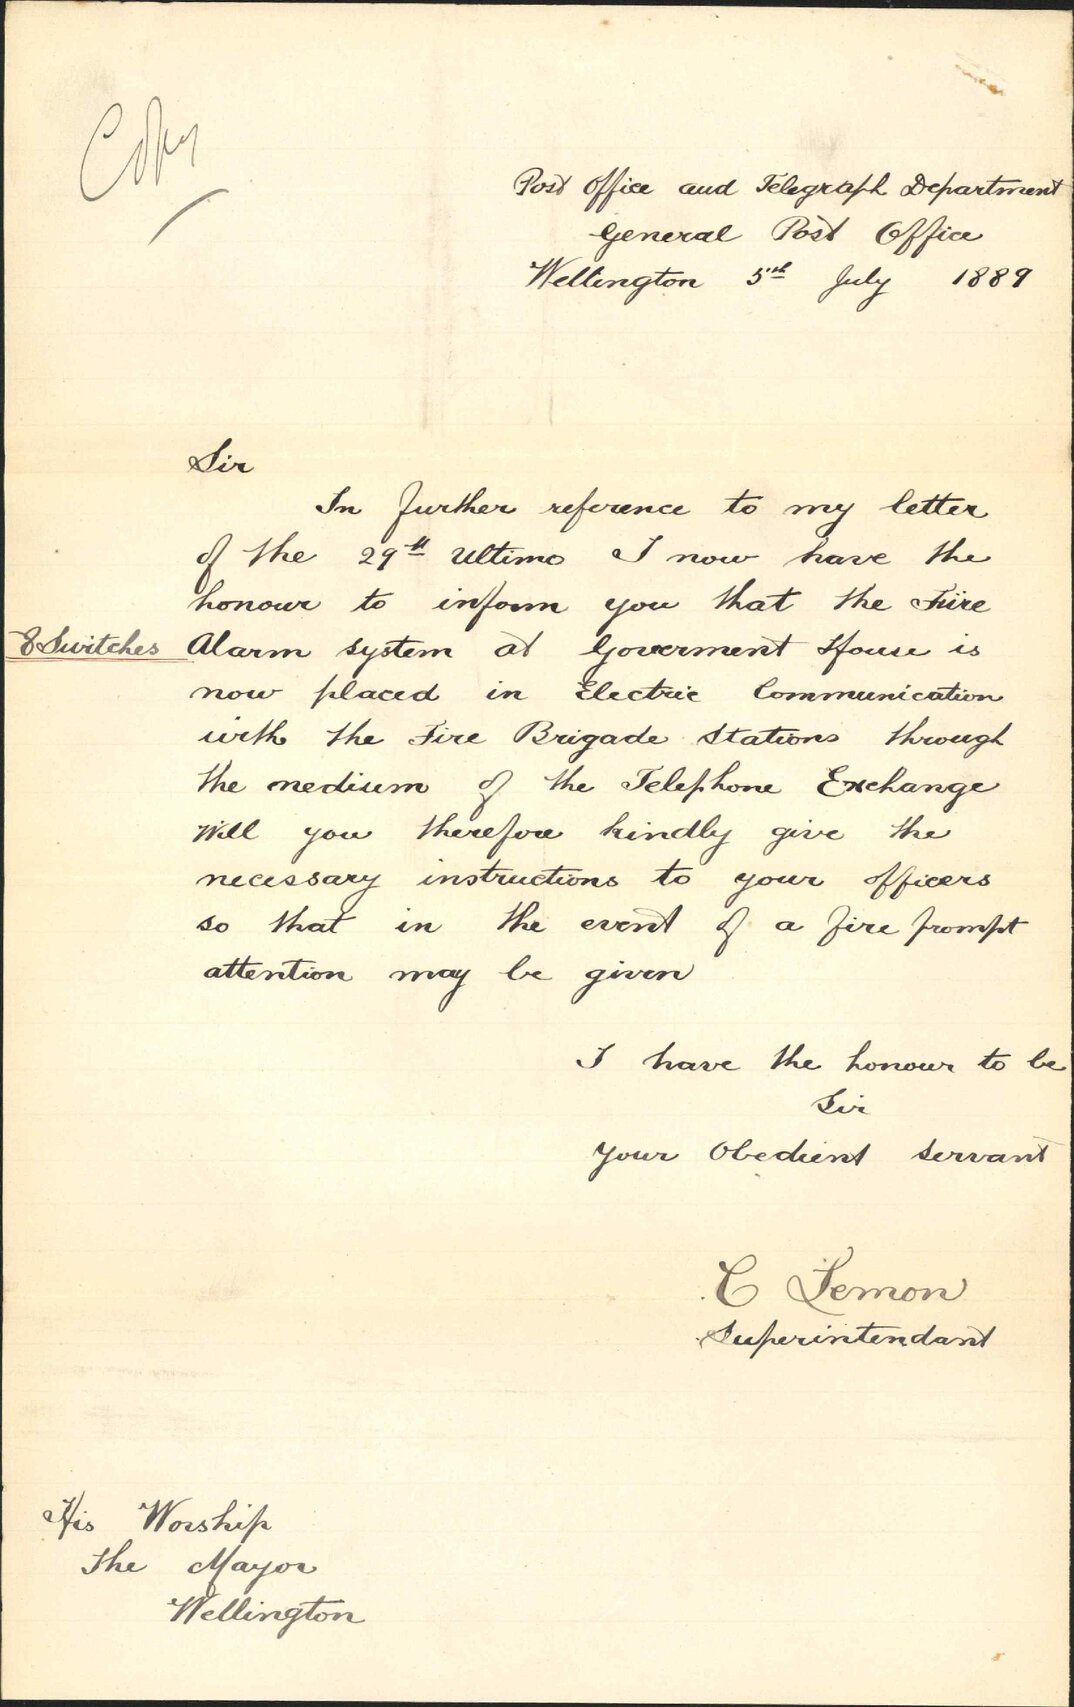 Copy
Post Office and Telegraph Department
General Post Office
Wellington 5th July 1889
Sir
In further reference to my letter
of the 29th Ultimo I now have the
honour to inform you that the Fire
8 Switches Alarm system at Goverment House is
now placed in Electric Communication
with the Fire Brigade Stations through
the medium of the Telephone Exchange
Will you therefore kindly give the
necessary instructions to your officers
so that in the event of a fire prompt
attention may be given
I have the honour to be
Sir
your Obedient servant
C Lemon
Superintendant
His Worship
The Mayor
Wellington